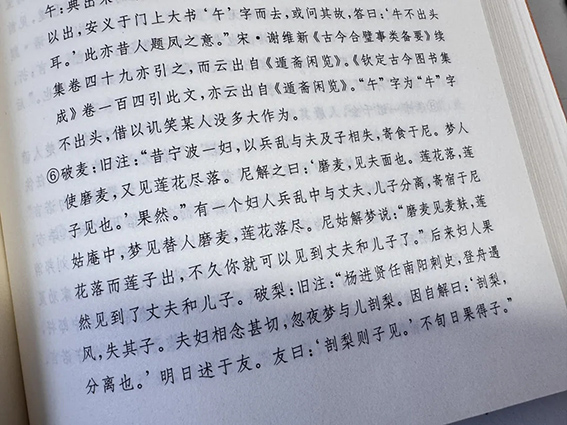 午：典出宋
以出，安义于门上大书‘午’字而去，或问其故，答曰：‘牛不出头
耳。’此亦昔人题凤之意。”宋·谢维新《古今合璧事类备要》续
集卷四十九亦引之，而云出自《遁斋闲览》。《钦定古今图书集
成》卷一百四引此文，亦云出自《遁斋闲览》。“午”字为“牛”字
不出头，借以讥笑某人没多大作为。
⑥破麦：旧注：“昔宁波一妇，以兵乱与夫及子相失，寄食于尼。梦人
使磨麦，又见莲花尽落。尼解之曰：‘磨麦，见夫面也。莲花落，莲
子见也。’果然。”有一个妇人兵乱中与丈夫、儿子分离，寄宿于尼
姑庵中，梦见替人磨麦，莲花落尽。尼姑解梦说：“磨麦见麦麸，莲
花落而莲子出，不久你就可以见到丈夫和儿子了。”后来妇人果
然见到了丈夫和儿子。破梨：旧注：“杨进贤任南阳刺史，登舟遇
风，失其子。夫妇相念甚切，忽夜梦与儿剖梨。因自解曰：‘剖梨，
分离也。’明日述于友。友曰：‘剖梨则子见。’不旬日果得子。”